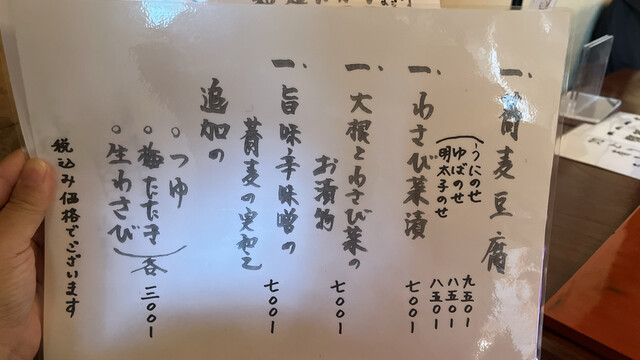 一、蕎麦豆腐
(うにのせ 九五〇一
ゆばのせ 八五〇一
明太子のせ 八五〇一
一、わさび菜漬 七〇〇一
一、大根とわさび菜の
お漬物 七〇〇一
一、旨味辛味噌の
蕎麦の実和え 七〇〇一
追加の
○つゆ
○梅たたき
○生わさび)各 三〇〇一
税込み価格でございます